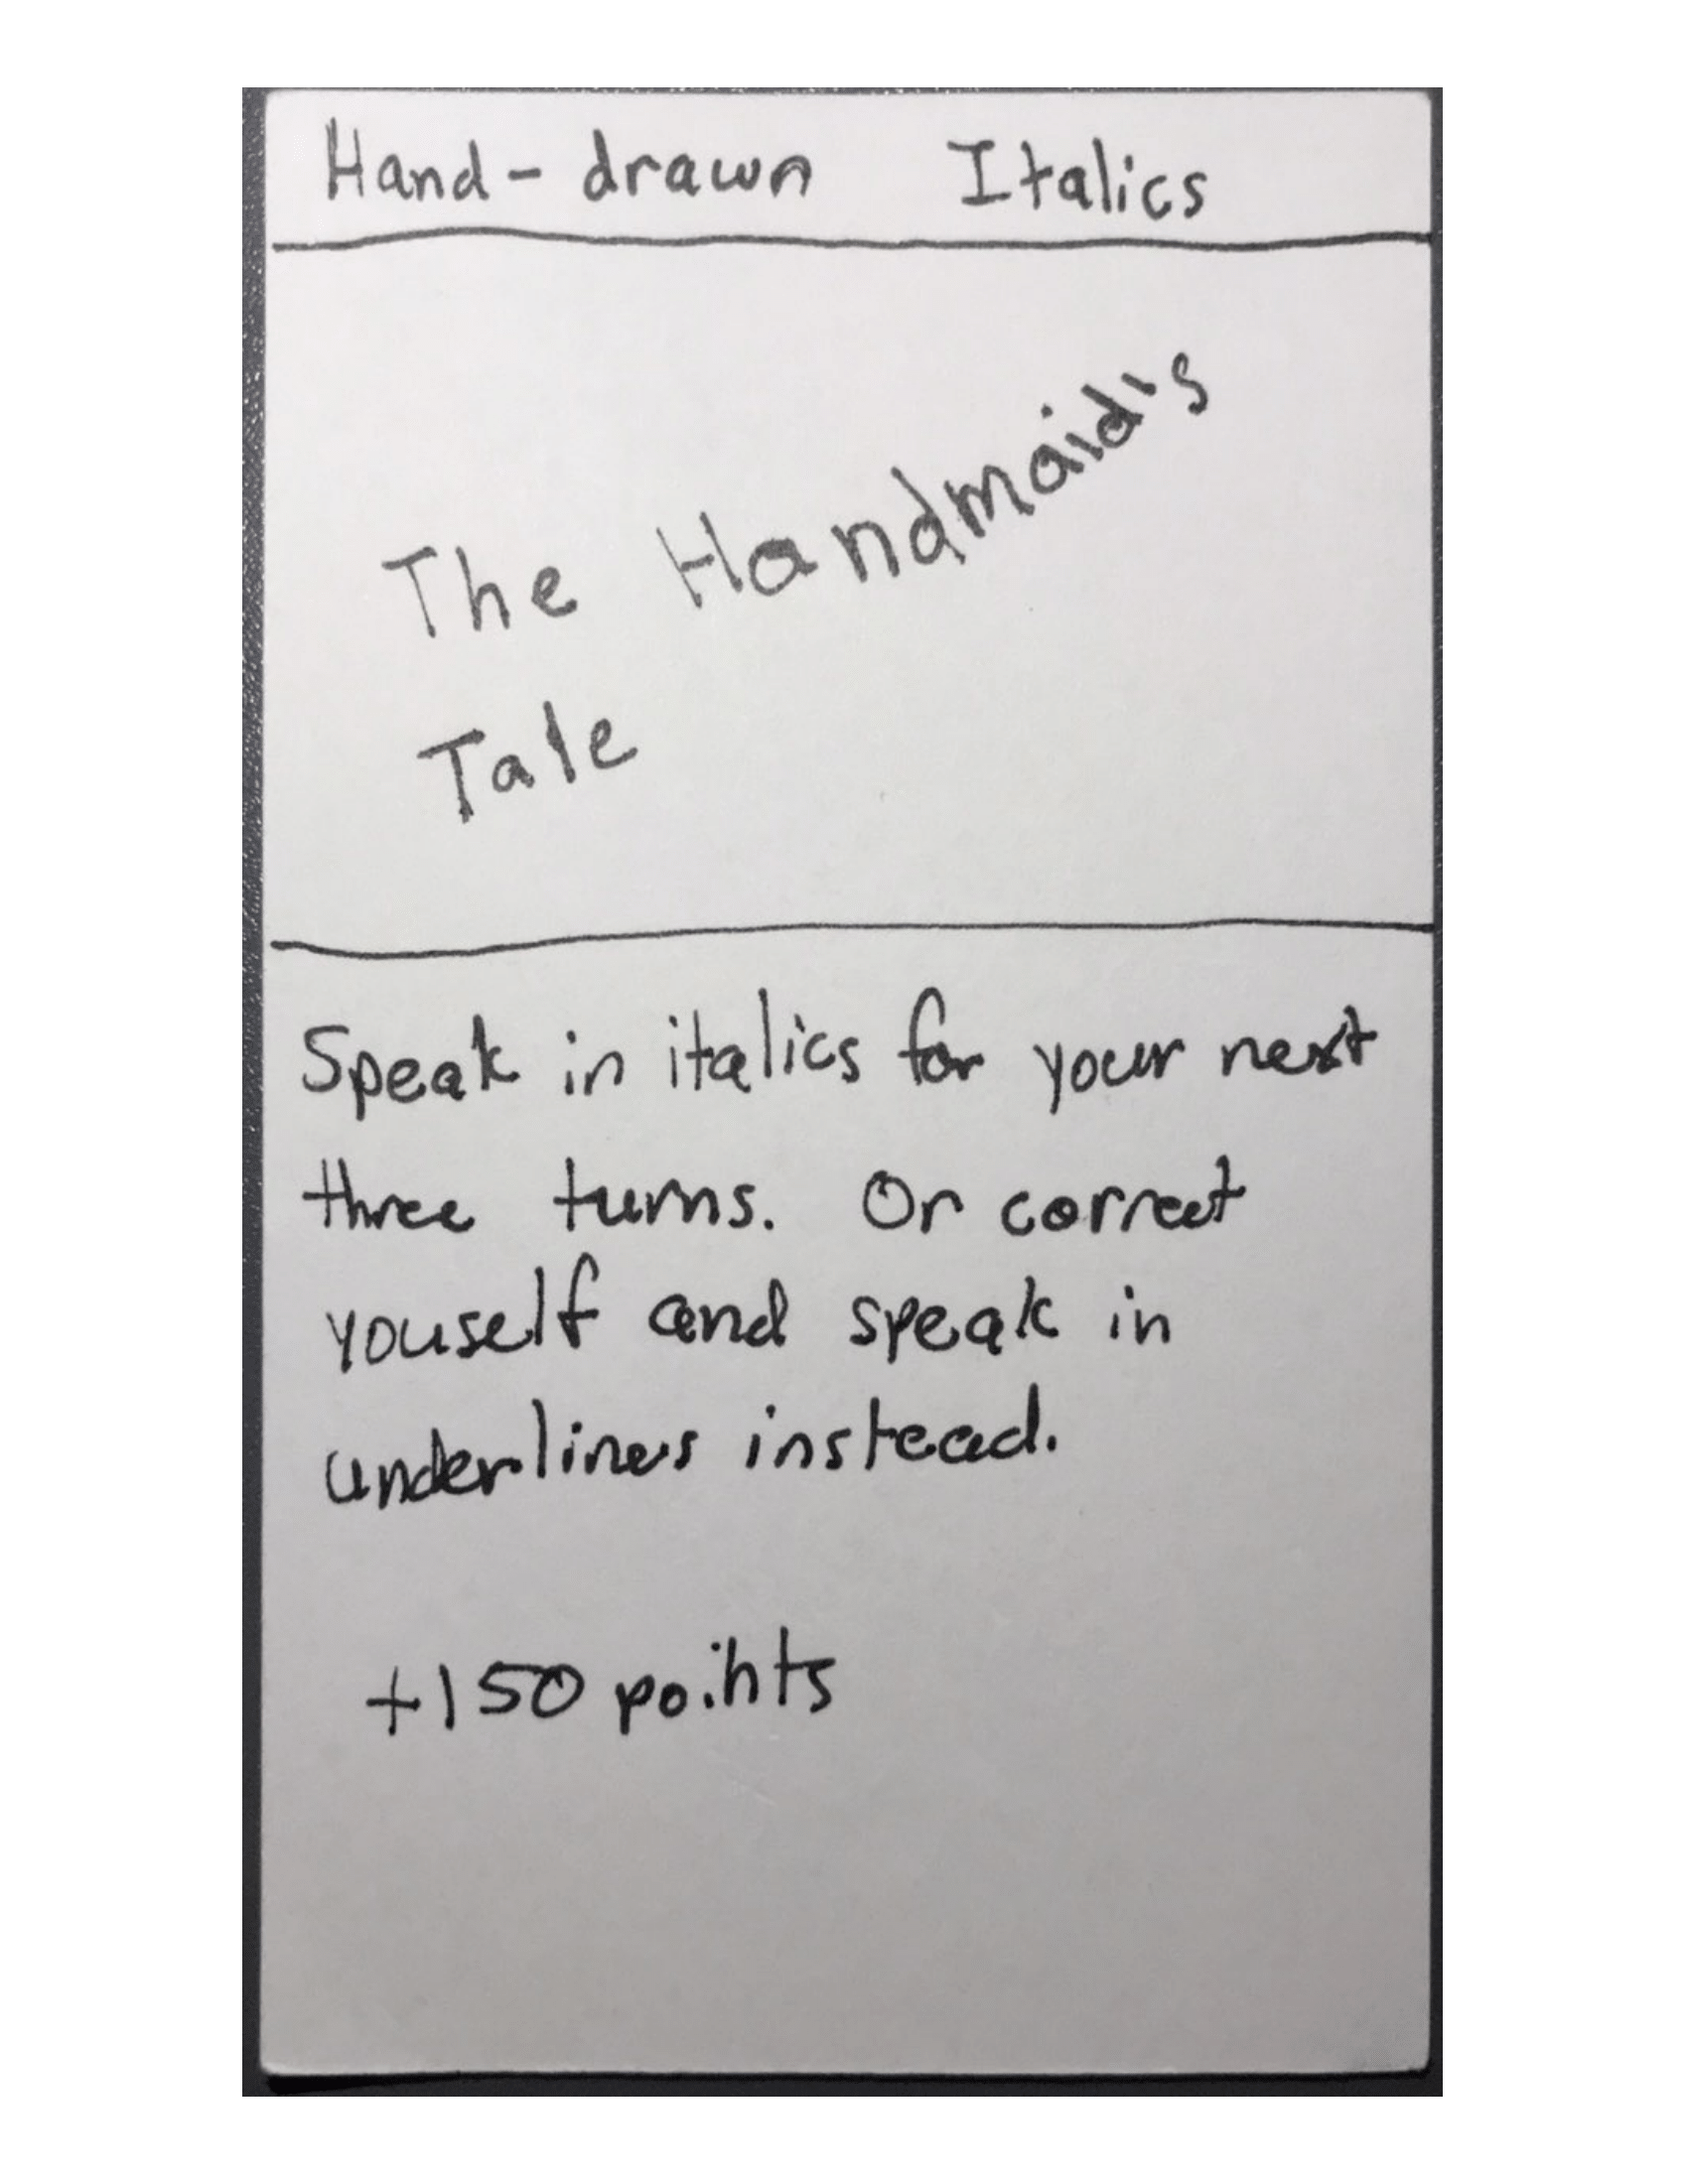 Hand-drawn Italics
The Handmaid's
Tale
Speak in italics for your next
three turns. Or correct
youself and speak in
underlines instead.
+150 points